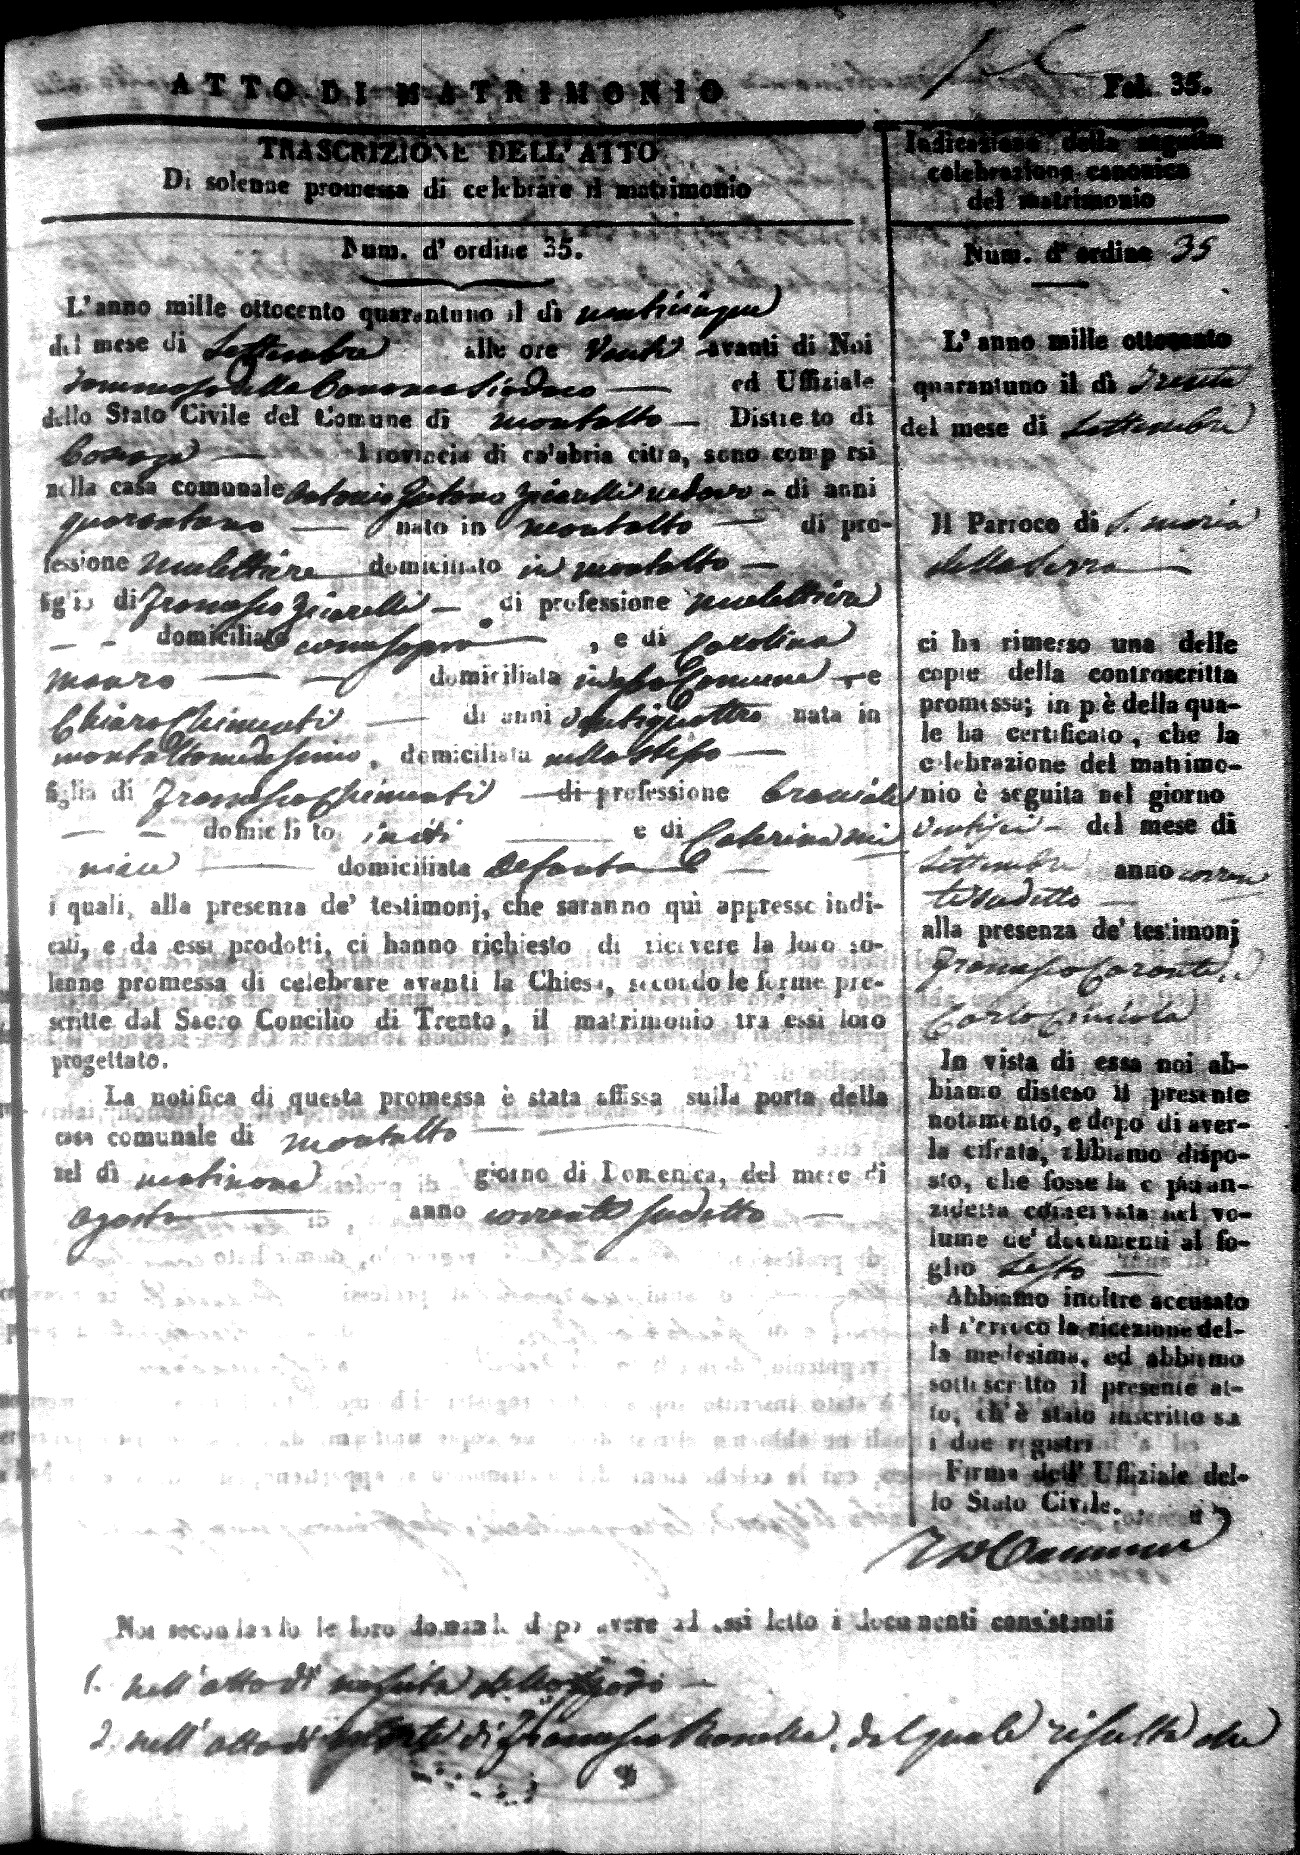 ATTO DI MATRIMONIO
Fol. 35.
TRASCRIZIONE DELL'ATTO
Di solenne promessa di celebrare il matrimonio
Num. d'ordine 35.
L'anno mille ottocento quarantuno il dì venticinque
del mese di Settembre alle ore Venti avanti di Noi
Tommaso della Sindaco ed Uffiziale
dello Stato Civile del Comune di Montalto Distretto di
Cosenza Provincia di calabria citra, sono comparsi
nella casa comunale Antonio Gaetano Ziccarelli vedovo di anni
quarantuno nato in Montalto di pro-
fessione Mulettiere domiciliato in Montalto
figlio di Francesco Ziccarelli di professione Mulettiere
domiciliato come sopra, e di Carolina
Mauro domiciliata in detto Comune, e
Chiara Chimenti di anni ventiquattro nata in
Montalto medesimo, domiciliata nello stesso
figlia di Francesco Chimenti di professione bracciale
domiciliato ivi e di Caterina
domiciliata defonta
i quali, alla presenza de' testimonj, che saranno quì appresso indi-
cati, e da essi prodotti, ci hanno richiesto di ricevere la loro so-
lenne promessa di celebrare avanti la Chiesa, secondo le forme pre-
scritte dal Sacro Concilio di Trento, il matrimonio tra essi loro
progettato.
La notifica di questa promessa è stata affissa sulla porta della
casa comunale di Montalto
nel dì ventinove giorno di Domenica, del mese di
Agosto anno corrente sudetto
Indicazione della seguita
celebrazione canonica
del matrimonio
Num. d'ordine 35
L'anno mille ottocento
quarantuno il dì Trenta
del mese di Settembre
Il Parroco di S. Maria
della Serra
ci ha rimesso una delle
copie della controscritta
promessa; in piè della qua-
le ha certificato, che la
celebrazione del matrimo-
nio è seguita nel giorno
Ventisei del mese di
Settembre anno corren
te sudetto
alla presenza de' testimonj
Francesco
Carlo
In vista di essa noi ab-
biamo disteso il presente
notamento, e dopo di aver-
la cifrata, abbiamo dispo-
sto, che fosse la copia an-
zidetta conservata nel vo-
lume de' documenti al fo-
glio Sesto
Abbiamo inoltre accusato
al Parroco la ricezione del-
la medesima, ed abbiamo
sottoscritto il presente at-
to, ch'è stato inscritto su
i due registri
Firma dell'Uffiziale del-
lo Stato Civile.
Noi secondando le loro domande dopo avere ad essi letto i documenti consistenti
1. nell'atto di nascita dello sposo
2. nell'atto di morte di Francesca, dal quale risulta che